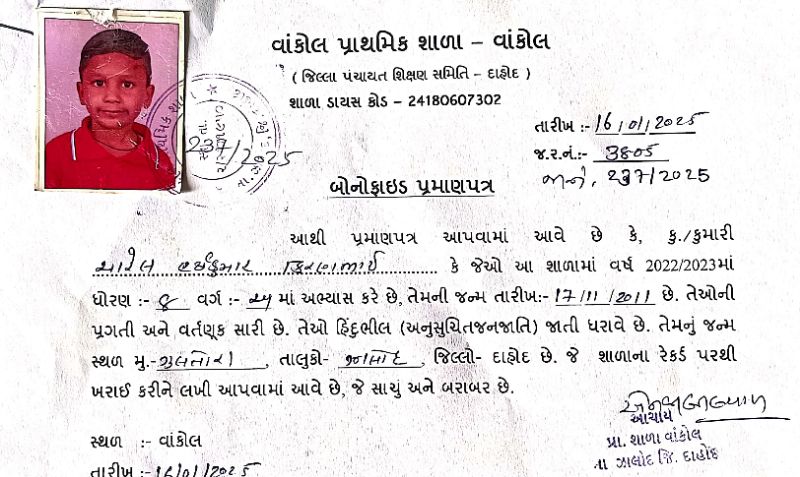 વાંકોલ પ્રાથમિક શાળા – વાંકોલ
( જિલ્લા પંચાયત શિક્ષણ સમિતિ – દાહોદ )
શાળા ડાયસ કોડ – 24180607302
તારીખ :- 16/01/2025
જ.ર.નં.:- 3805
જાને, 237/2025
237/2025
બોનોફાઇડ પ્રમાણપત્ર
આથી પ્રમાણપત્ર આપવામાં આવે છે કે, કુ./કુમારી
કે જેઓ આ શાળામાં વર્ષ 2022/2023માં
ધોરણ :- 8 વર્ગ :- માં અભ્યાસ કરે છે, તેમની જન્મ તારીખ:- 17/11/2011 છે. તેઓની
પ્રગતી અને વર્તણૂક સારી છે. તેઓ હિંદુભીલ (અનુસુચિતજનજાતિ) જાતી ધરાવે છે. તેમનું જન્મ
સ્થળ મુ.- , તાલુકો- , જિલ્લો- દાહોદ છે. જે શાળાના રેકર્ડ પરથી
ખરાઈ કરીને લખી આપવામાં આવે છે, જે સાચું અને બરાબર છે.
આચાર્ય
પ્રા. શાળા વાંકોલ
તા ઝાલોદ જિ. દાહોદ
સ્થળ :- વાંકોલ
તારીખ :- 16/01/2025